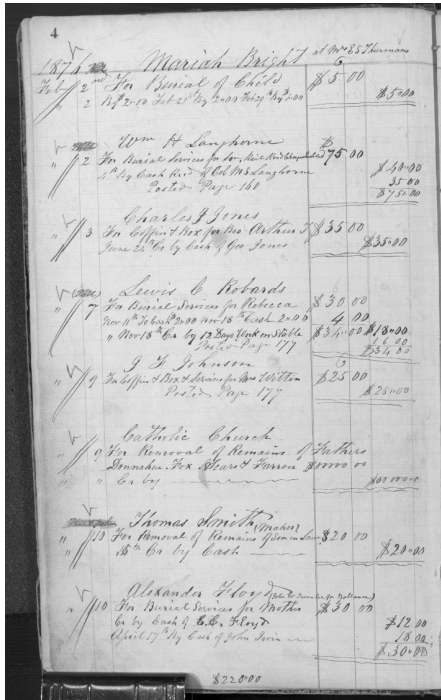 4
Mariah Bright at Mrs E S Thurmans
1876
Feby 2 For Burial of Child $5 00
2 By 2.00 Feb 21st By 2.00 Feb 29th By 1.00 $5.00
Wm H Langhorne
" 2 For Burial Services for Son $75 00
4th By Cash Recd of Col M S Langhorne $40.00
Posted Page 160 35 00
$75.00
Charles J Jones
" 3 For Coffin & Box for Bro Arthur J $35 00
June 24th Cr by Cash of Geo Jones $35.00
Lewis C Robards
" 7 For Burial Services for Rebecca $30 00
Nov 4th To Cash 2.00 Nov 18th Cash 2.00 4 00
" Nov 18th Cr by 12 Days Work on Stable $34.00 $18.00
Posted Page 177 16 00
$34.00
J F Johnson
" 9 For Coffin & Box & Services for Mrs Witton $25 00
Posted Page 177 $25.00
Catholic Church
" 9 For Removal of Remains of Fathers
Donnahue Fox Sears & Farren $0000 00
" " Cr by $0000.00
Thomas Smith (Mason)
" 10 For Removal of Remains of Son in Law $20 00
" 15th Cr by Cash $20.00
Alexander Floyd
" 10 For Burial Services for Mother $30 00
Cr by Cash of C.C. Floyd $12 00
April 17th By Cash of John Irvin 18 00
$30.00
$220.00